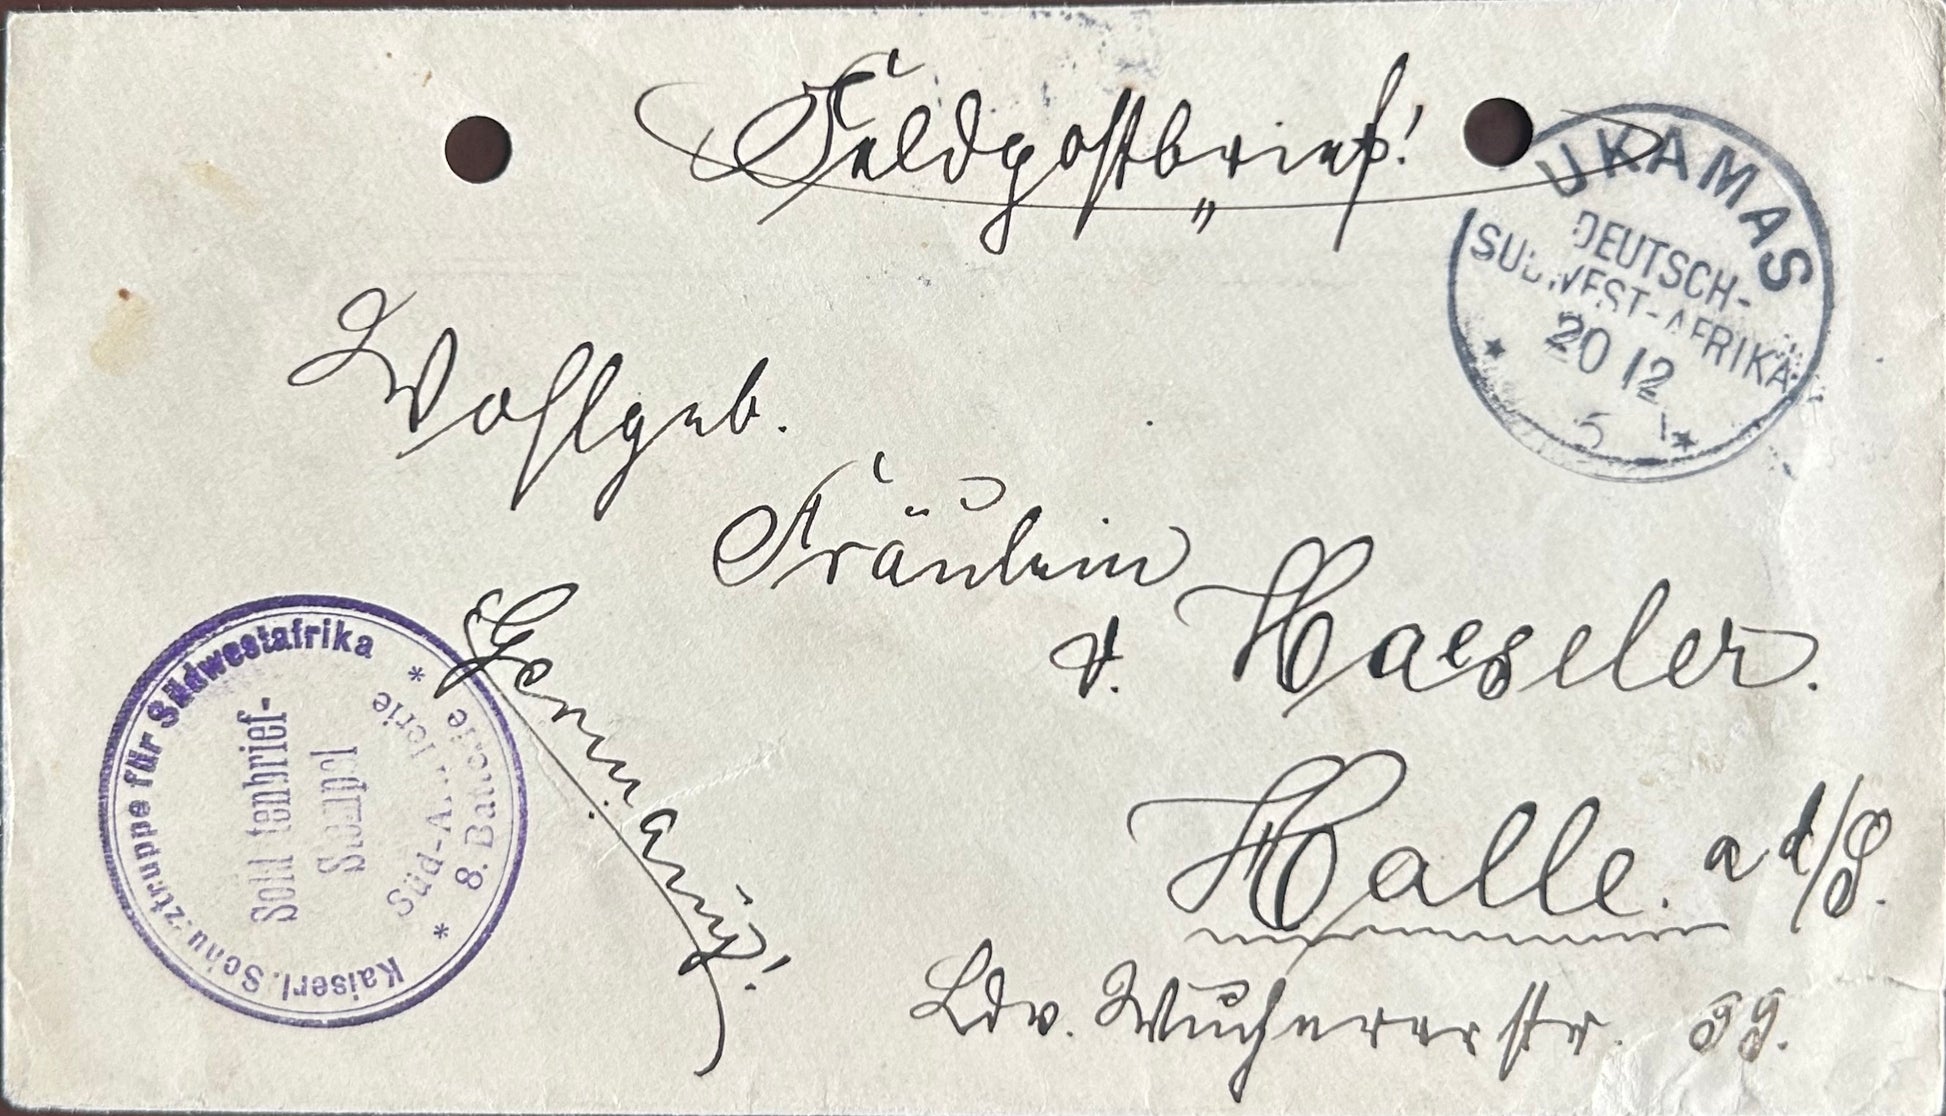 Feldpostbrief!
UKAMAS
DEUTSCH-
SÜDWEST-AFRIKA
20 12
5
Wohlgeb.
Fräulein
v. Haeseler.
Germany!
Halle. a d/S.
Ldw. Wuchererstr.
Kaiserl. Schutztruppe für Südwestafrika
Soldatenbrief-
Stempel
Süd-Artillerie
8. Batterie